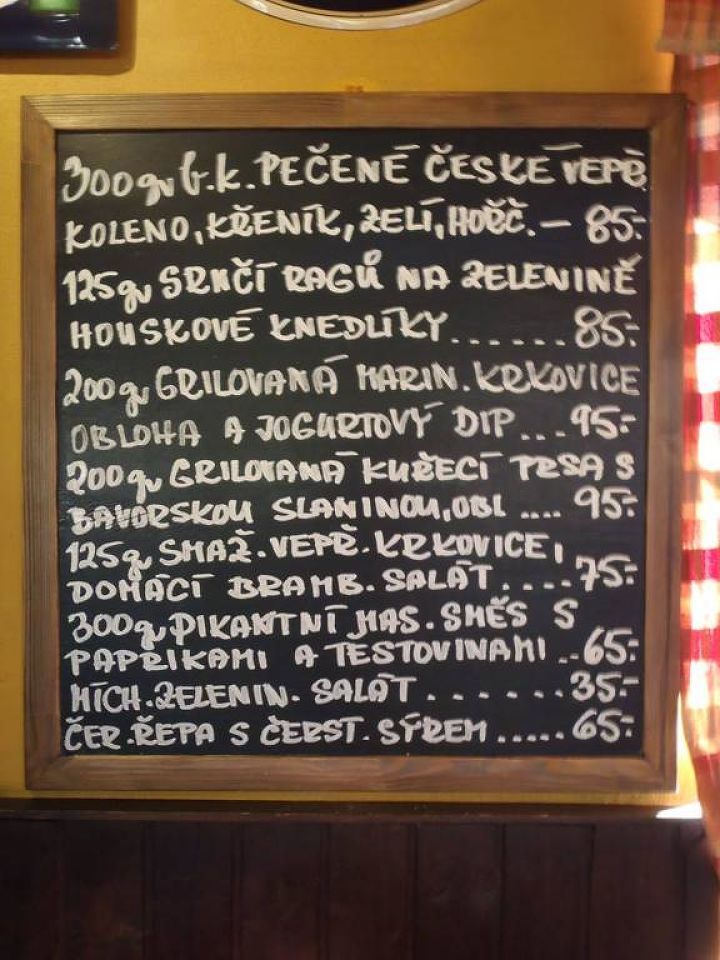 300g b.k. PEČENÉ ČESKÉ VEPŘ.
KOLENO, KŘENÍK, ZELÍ, HOŘČ. – 85.-
125g SRNČÍ RAGŮ NA ZELENINĚ
HOUSKOVÉ KNEDLÍKY...... 85.-
200g GRILOVANÁ MARIN. KRKOVICE
OBLOHA A JOGURTOVÝ DIP... 95.-
200g GRILOVANÁ KUŘECÍ PRSA S
BAVORSKOU SLANINOU, OBL .... 95.-
125g SMAŽ. VEPŘ. KRKOVICE,
DOMÁCÍ BRAMB. SALÁT.... 75.-
300g PIKANTNÍ MAS. SMĚS S
PAPRIKAMI A TĚSTOVINAMI .. 65.-
MÍCH. ZELENIN. SALÁT....... 35.-
ČER. ŘEPA S ČERST. SÝREM ..... 65.-